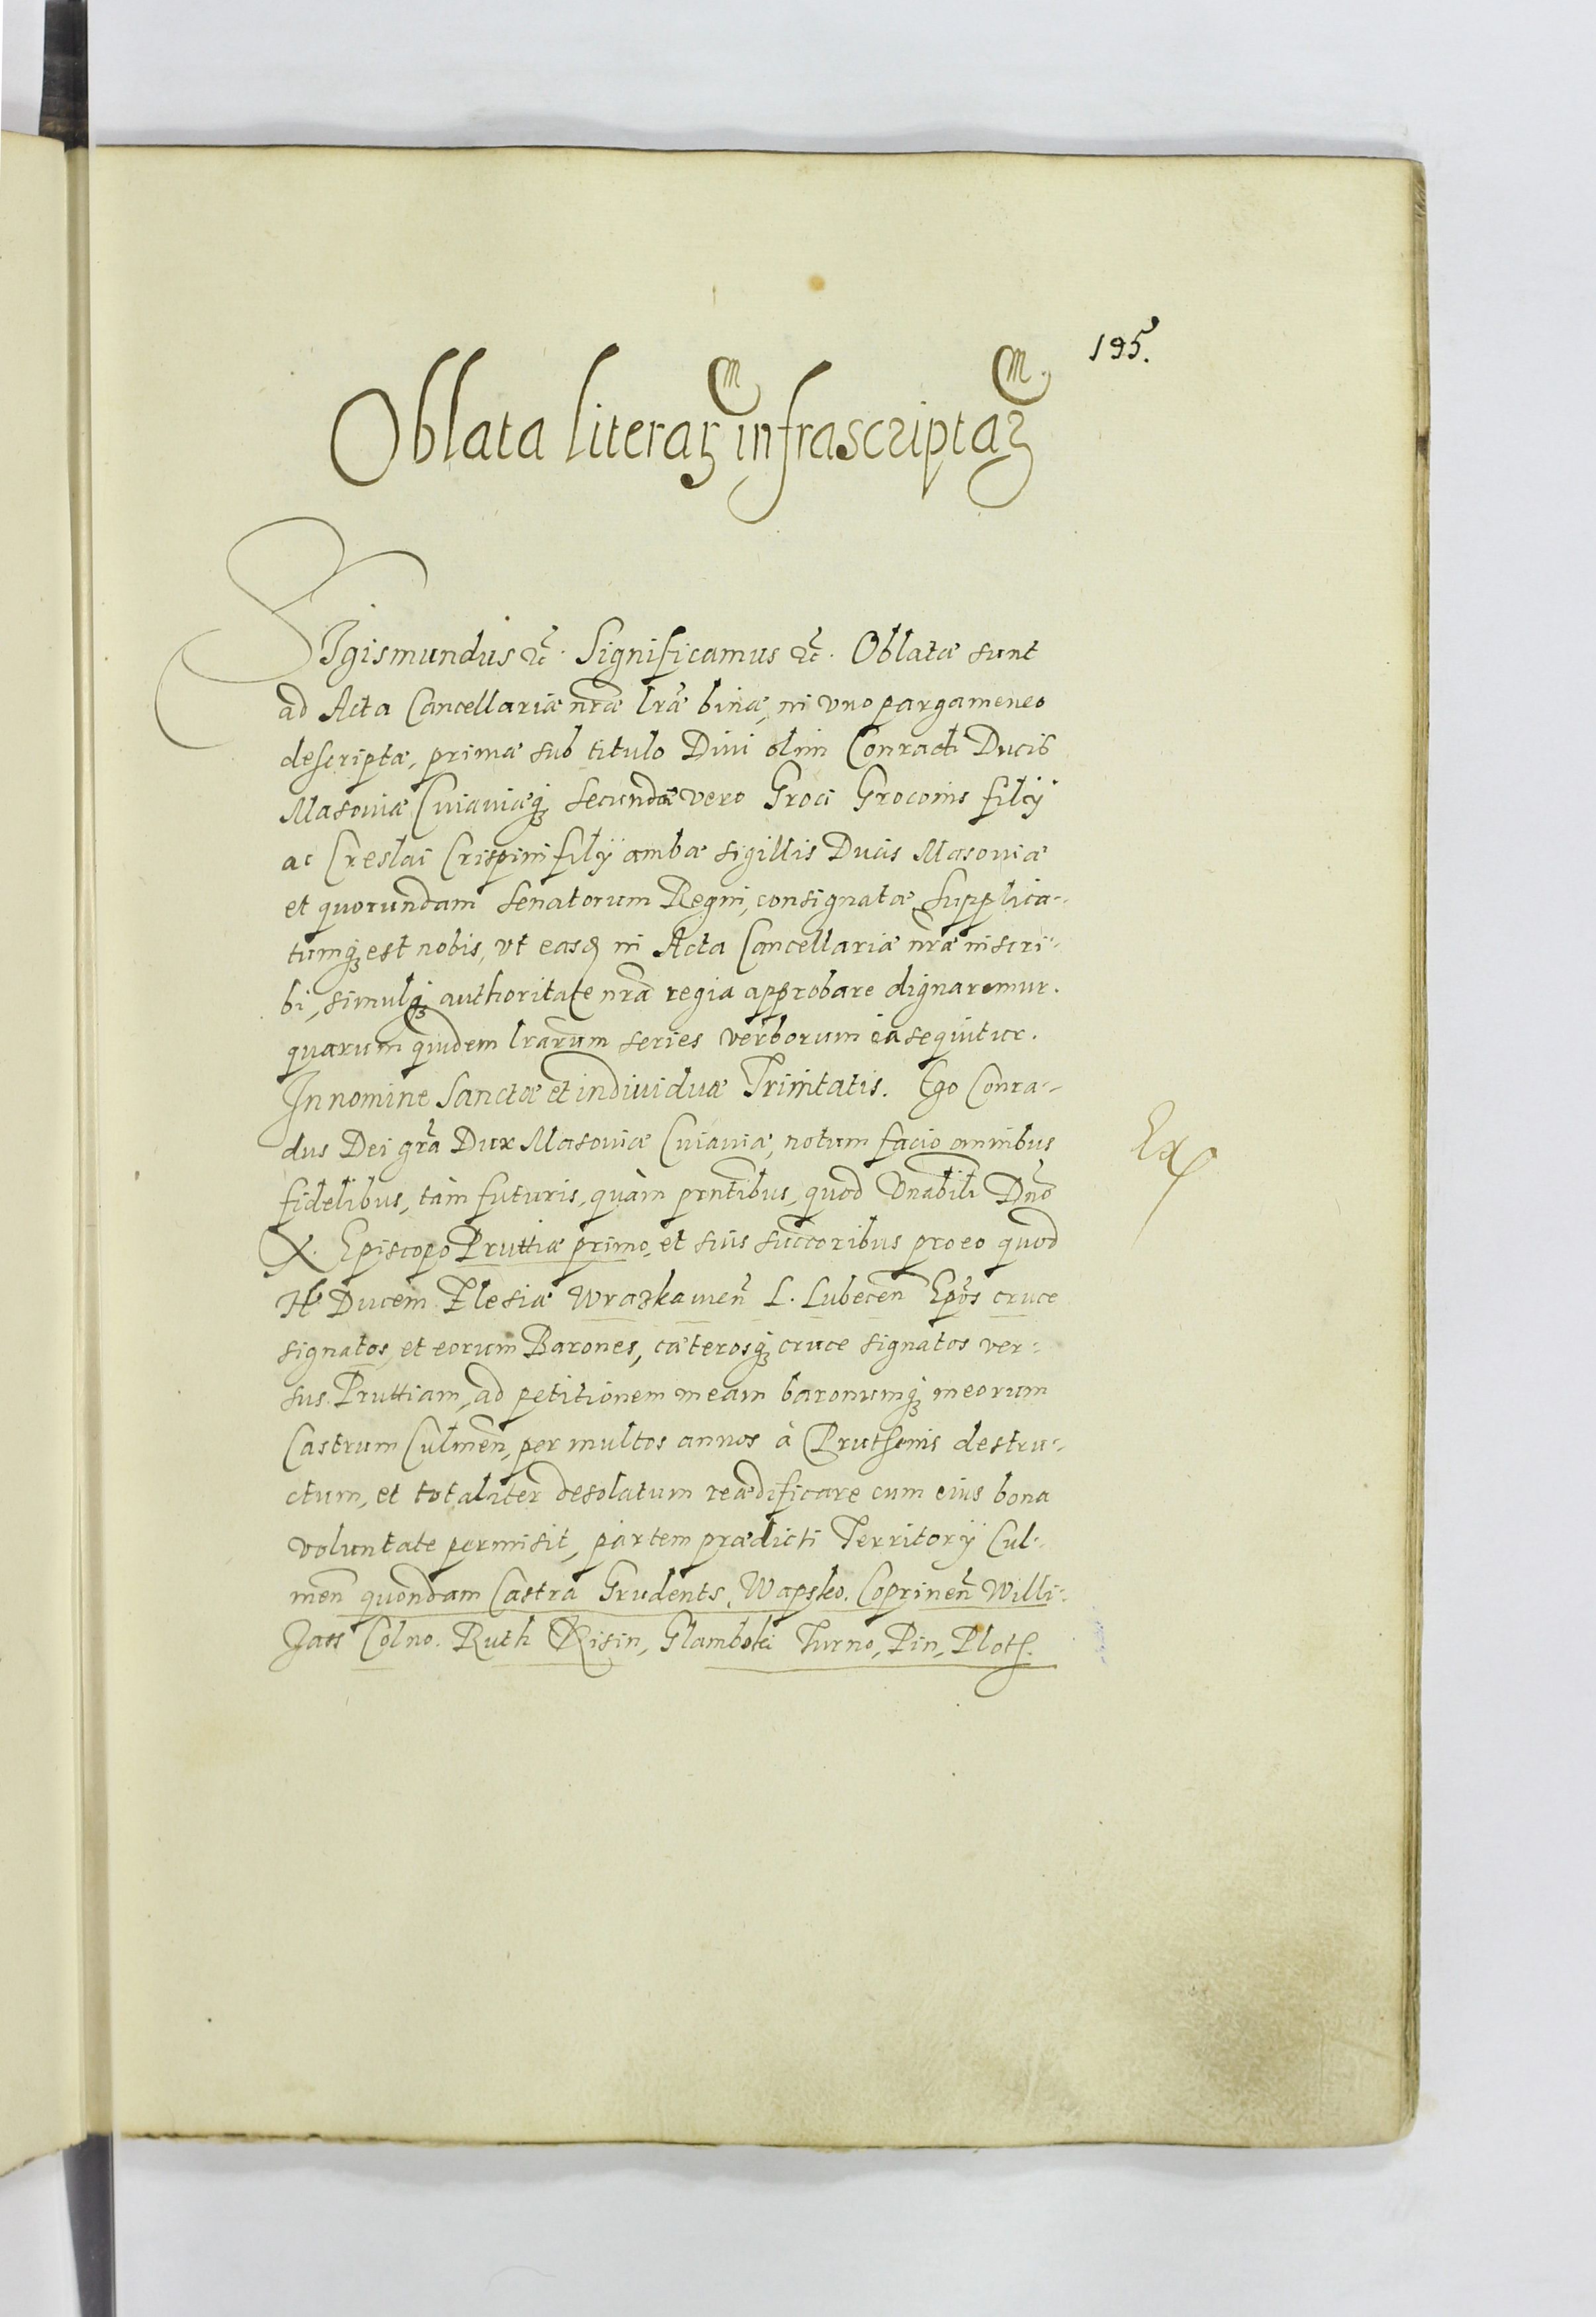 195.
Oblata literaꝝ infrascriptaꝝ
SIgismundus &c. Significamus &c. Oblatæ sunt
ad Acta Cancellariæ nr̃æ lr̃æ binæ, in vno pargameneo
descriptæ, primæ sub titulo Diui olim Conradi Ducis
Masouiæ Cuiauiæq; secundæ vero Groci Groconis filij
ac Creslai Crispini filij ambæ sigillis Ducis Masouiæ
et quorundam Senatorum Regni, consignatæ, Supplica-
tumq; est nobis, vt easd in Acta Cancellariæ nr̃æ inscri-
bi, simulq; authoritate nr̃a regia approbare dignaremur.
quarum quidem lrarum series verborum ea sequitur.
In nomine Sanctæ et indiuiduæ Trinitatis. Ego Conra-
dus Dei gr̃a Dux Masouiæ Cuiauiæ, notum facio omnibus
Ex
fidelibus, tàm futuris, quàm prntibus, quod Vnabili Dño
X. Episcopo Pruttiæ primo, et suis succoribus pro eo quod
H. Ducem Zlesiæ Wrazkamen̄ L. Lubecen̄ Epos cruce
signatos, et eorum Barones, cæterosq; cruce signatos ver-
sus Pruttiam, ad petitionem meam baronumq; meorum
Castrum Culmen̄, per multos annos à Prutsenis destru-
ctum, et totaliter desolatum reædificare cum eius bona
voluntate permisit, partem prædicti Territorij Cul-
men̄ quondam Castra Grudents, Wapsko. Coprinen̄ Willi-
Jass Colno. Ruth Risin, Glamboki Turno, Pin, Plots.